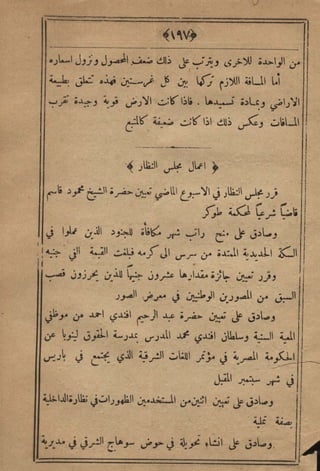 ﴿١٩٧﴾
من الواحدة للاخرى ويترتب على ذلك ضعف المحصول ونزول اسعاره
أما المسافة اللازم تركها بين كل غرستين فهذه تتعلق بطبيعة
الاراضي وبمادة تسميدها . فاذا كانت الارض قوية وجيدة تقرب
المسافات وعكس ذلك اذا كانت ضعيفة كالمتبع
﴿ اعمال مجلس النظار ﴾
قرر مجلس النظار في الاسبوع الماضي تعيين حضرة الشيخ محمود قاسم
قاضياً شرعياً لمحكمة طوكر
وصادق على منح راتب شهر مكافأة للجنود الذين عملوا في
السكة الحديدية الممتدة من سرس الى كرمه فبلغت القيمة الفي جنيه
وقرر تعيين جائزة مقدارها عشرون جنيهاً للذين يحرزون قصب
السبق من المصورين الوطنيين في معرض الصور
وصادق على تعيين حضرة عبد الرحيم افندي احمد من موظفي
المعية السنية وسلطان افندي محمد المدرس بمدرسة الحقوق لينوبا عن
الحكومة المصرية في مؤتمر اللغات الشرقية الذي يجتمع في باريس
في شهر سبتمبر المقبل
وصادق على تعيين اثنين من المستخدمين الظهورات في نظارة الداخلية
بصفة عملية
وصادق على انشاء تحويلة في حوض سوهاج الشرقي في مديرية